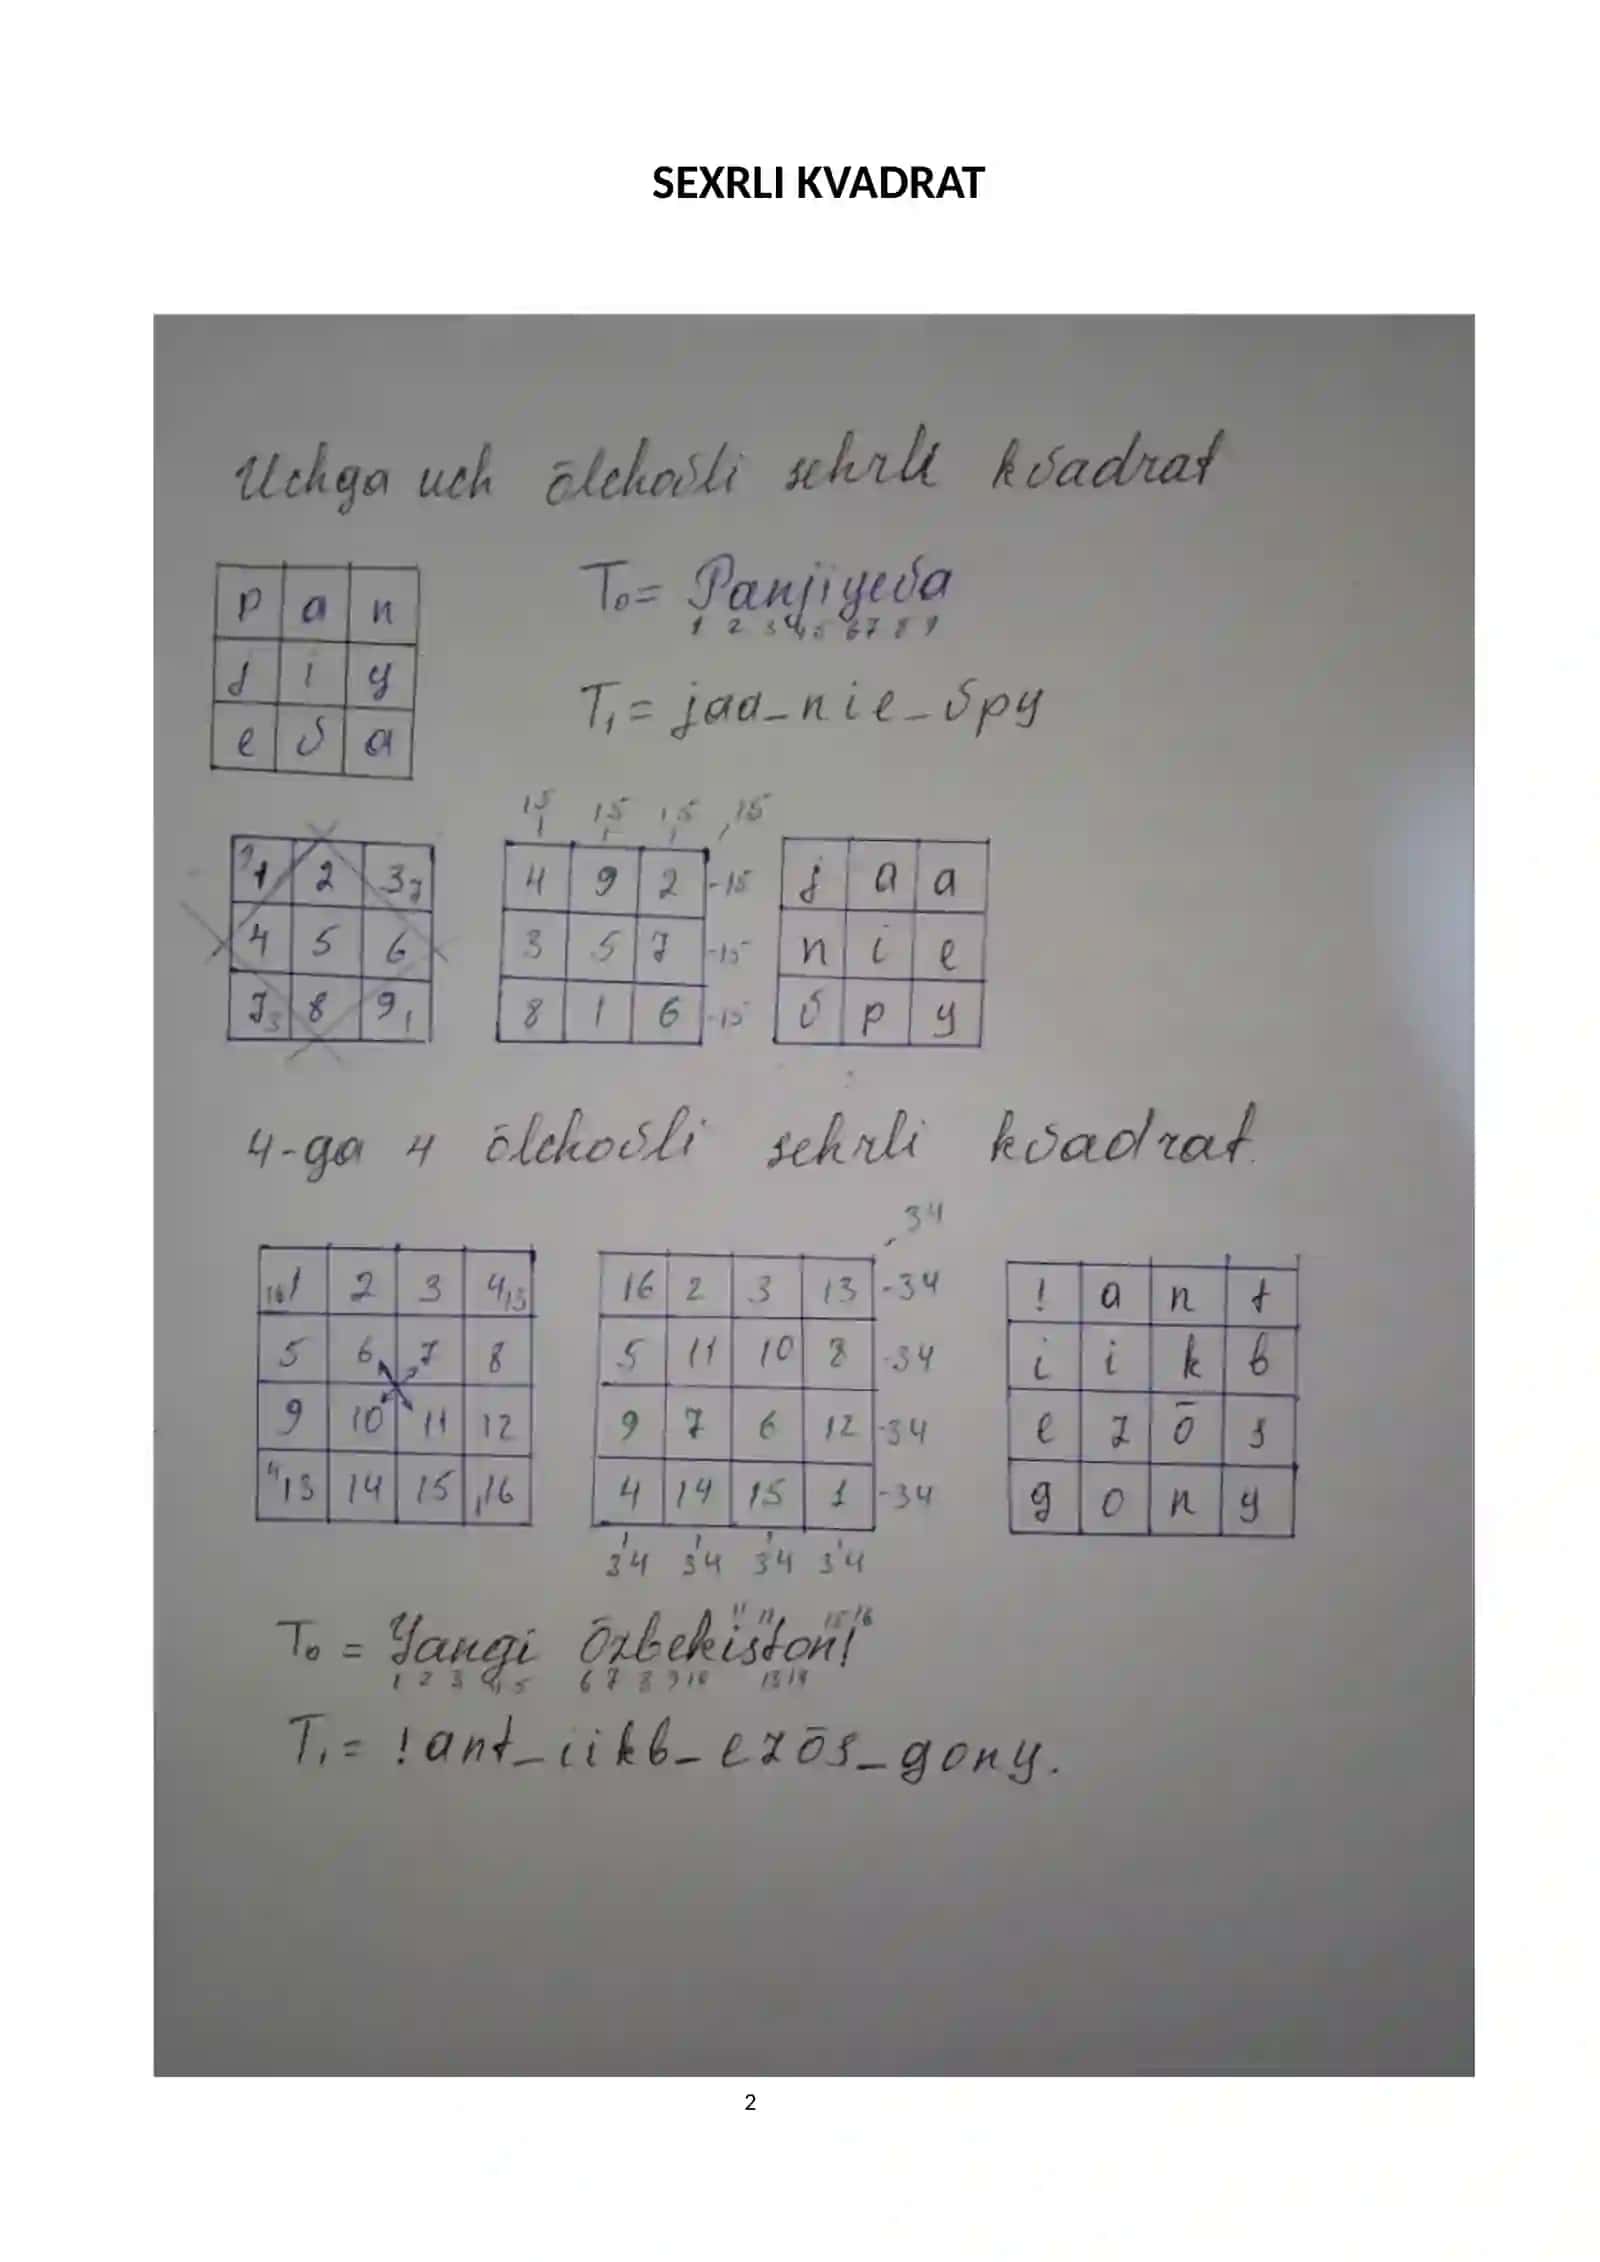 SEXRLI KVADRAT
Uchga uch ōlchovli sehrli kvadrat
p a n
j i y
e v a
T₀= Panjiyeva
1 2 3 4 5 6 7 8 9
T₁= jaa_nie_vpy
15 15 15 15
9 1 2 3 7
4 5 6
7 3 8 9 1
4 9 2 -15
3 5 7 -15
8 1 6 -15
j a a
n i e
v p y
4-ga 4 ōlchovli sehrli kvadrat.
34
16 1 2 3 4 13
5 6 7 8
9 10 11 12
4 13 14 15 1 16
16 2 3 13 -34
5 11 10 8 -34
9 7 6 12 -34
4 14 15 1 -34
34 34 34 34
! a n t
i i k b
e z ō s
g o n y
11 12 15 16
T₀ = Yangi Ōzbekiston!
1 2 3 4 5 6 7 8 9 10 13 14
T₁= !ant_iikb_ezōs_gony.
2